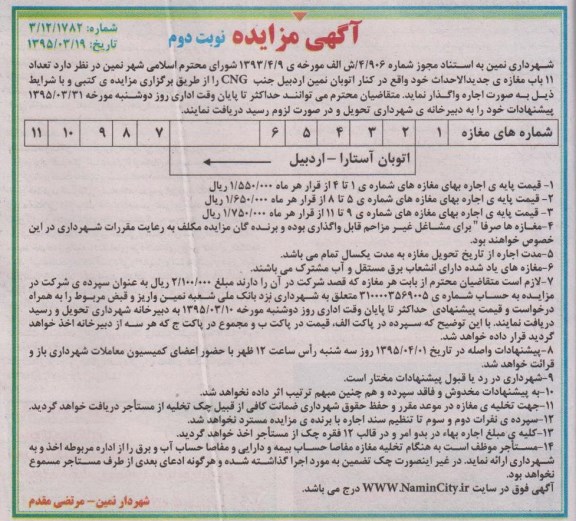 شماره: ۳/۱۲/۱۷۸۲
تاریخ: ۱۳۹۵/۰۳/۱۹
آگهی مزایده نوبت دوم
شهرداری نمین به استناد مجوز شماره ۴/۹۰۶/ش الف مورخه ی ۱۳۹۳/۴/۹ شورای محترم اسلامی شهر نمین در نظر دارد تعداد
۱۱ باب مغازه ی جدیدالاحداث خود واقع در کنار اتوبان نمین اردبیل جنب CNG را از طریق برگزاری مزایده ی کتبی و با شرایط
ذیل به صورت اجاره واگذار نماید. متقاضیان محترم می توانند حداکثر تا پایان وقت اداری روز دوشنبه مورخه ۱۳۹۵/۰۳/۳۱
پیشنهادات خود را به دبیرخانه ی شهرداری تحویل و در صورت لزوم رسید دریافت نمایند.
شماره های مغازه ۱ ۲ ۳ ۴ ۵ ۶ ۷ ۸ ۹ ۱۰ ۱۱
اتوبان آستارا - اردبیل
۱- قیمت پایه ی اجاره بهای مغازه های شماره ی ۱ تا ۴ از قرار هر ماه ۱/۵۵۰/۰۰۰ ریال
۲- قیمت پایه ی اجاره بهای مغازه های شماره ی ۵ تا ۸ از قرار هر ماه ۱/۶۵۰/۰۰۰ ریال
۳- قیمت پایه ی اجاره بهای مغازه های شماره ی ۹ تا ۱۱ از قرار هر ماه ۱/۷۵۰/۰۰۰ ریال
۴-مغازه ها صرفا" برای مشاغل غیر مزاحم قابل واگذاری بوده و برنده گان مزایده مکلف به رعایت مقررات شهرداری در این
خصوص خواهند بود.
۵-مدت اجاره از تاریخ تحویل مغازه به مدت یکسال تمام می باشد.
۶-مغازه های یاد شده دارای انشعاب برق مستقل و آب مشترک می باشند.
۷-لازم است متقاضیان محترم از بابت هر مغازه که قصد شرکت در آن را دارند مبلغ ۲/۱۰۰/۰۰۰ ریال به عنوان سپرده ی شرکت در
مزایده به حساب شماره ی ۳۱۰۰۰۰۳۵۶۹۰۰۵ متعلق به شهرداری نزد بانک ملی شعبه نمین واریز و قبض مربوط را به همراه
درخواست و قیمت پیشنهادی حداکثر تا پایان وقت اداری روز دوشنبه مورخه ۱۳۹۵/۰۳/۱۰ به دبیرخانه شهرداری تحویل و رسید
دریافت نمایند. با این توضیح که سپرده در پاکت الف، قیمت در پاکت ب و مجموع در پاکت ج که هر سه از دبیرخانه اخذ خواهد
گردید قرار داده خواهد شد.
۸-پیشنهادات واصله در تاریخ ۱۳۹۵/۰۴/۰۱ روز سه شنبه رأس ساعت ۱۲ ظهر با حضور اعضای کمیسیون معاملات شهرداری باز و
قرائت خواهد شد.
۹-شهرداری در رد یا قبول پیشنهادات مختار است.
۱۰-به پیشنهادات مخدوش و فاقد سپرده و هم چنین مبهم ترتیب اثر داده نخواهد شد.
۱۱-جهت تخلیه ی مغازه در موعد مقرر و حفظ حقوق شهرداری ضمانت کافی از قبیل چک تخلیه از مستأجر دریافت خواهد گردید.
۱۲-سپرده ی نفرات دوم و سوم تا تنظیم سند اجاره با برنده ی مزایده مسترد نخواهد شد.
۱۳-کلیه ی مبلغ اجاره بهاء در بدو امر و در قالب ۱۲ فقره چک از مستأجر اخذ خواهد گردید.
۱۴-مستأجر موظف است به هنگام تخلیه مغازه مفاصا حساب بیمه و دارایی و مفاصا حساب آب و برق را از اداره مربوطه اخذ و به
شهرداری ارائه نماید. در غیر اینصورت چک تضمین به مورد اجرا گذاشته شده و هرگونه ادعای بعدی از طرف مستاجر مسموع
نخواهد بود.
آگهی فوق در سایت WWW.NaminCity.ir درج می باشد.
شهردار نمین - مرتضی مقدم